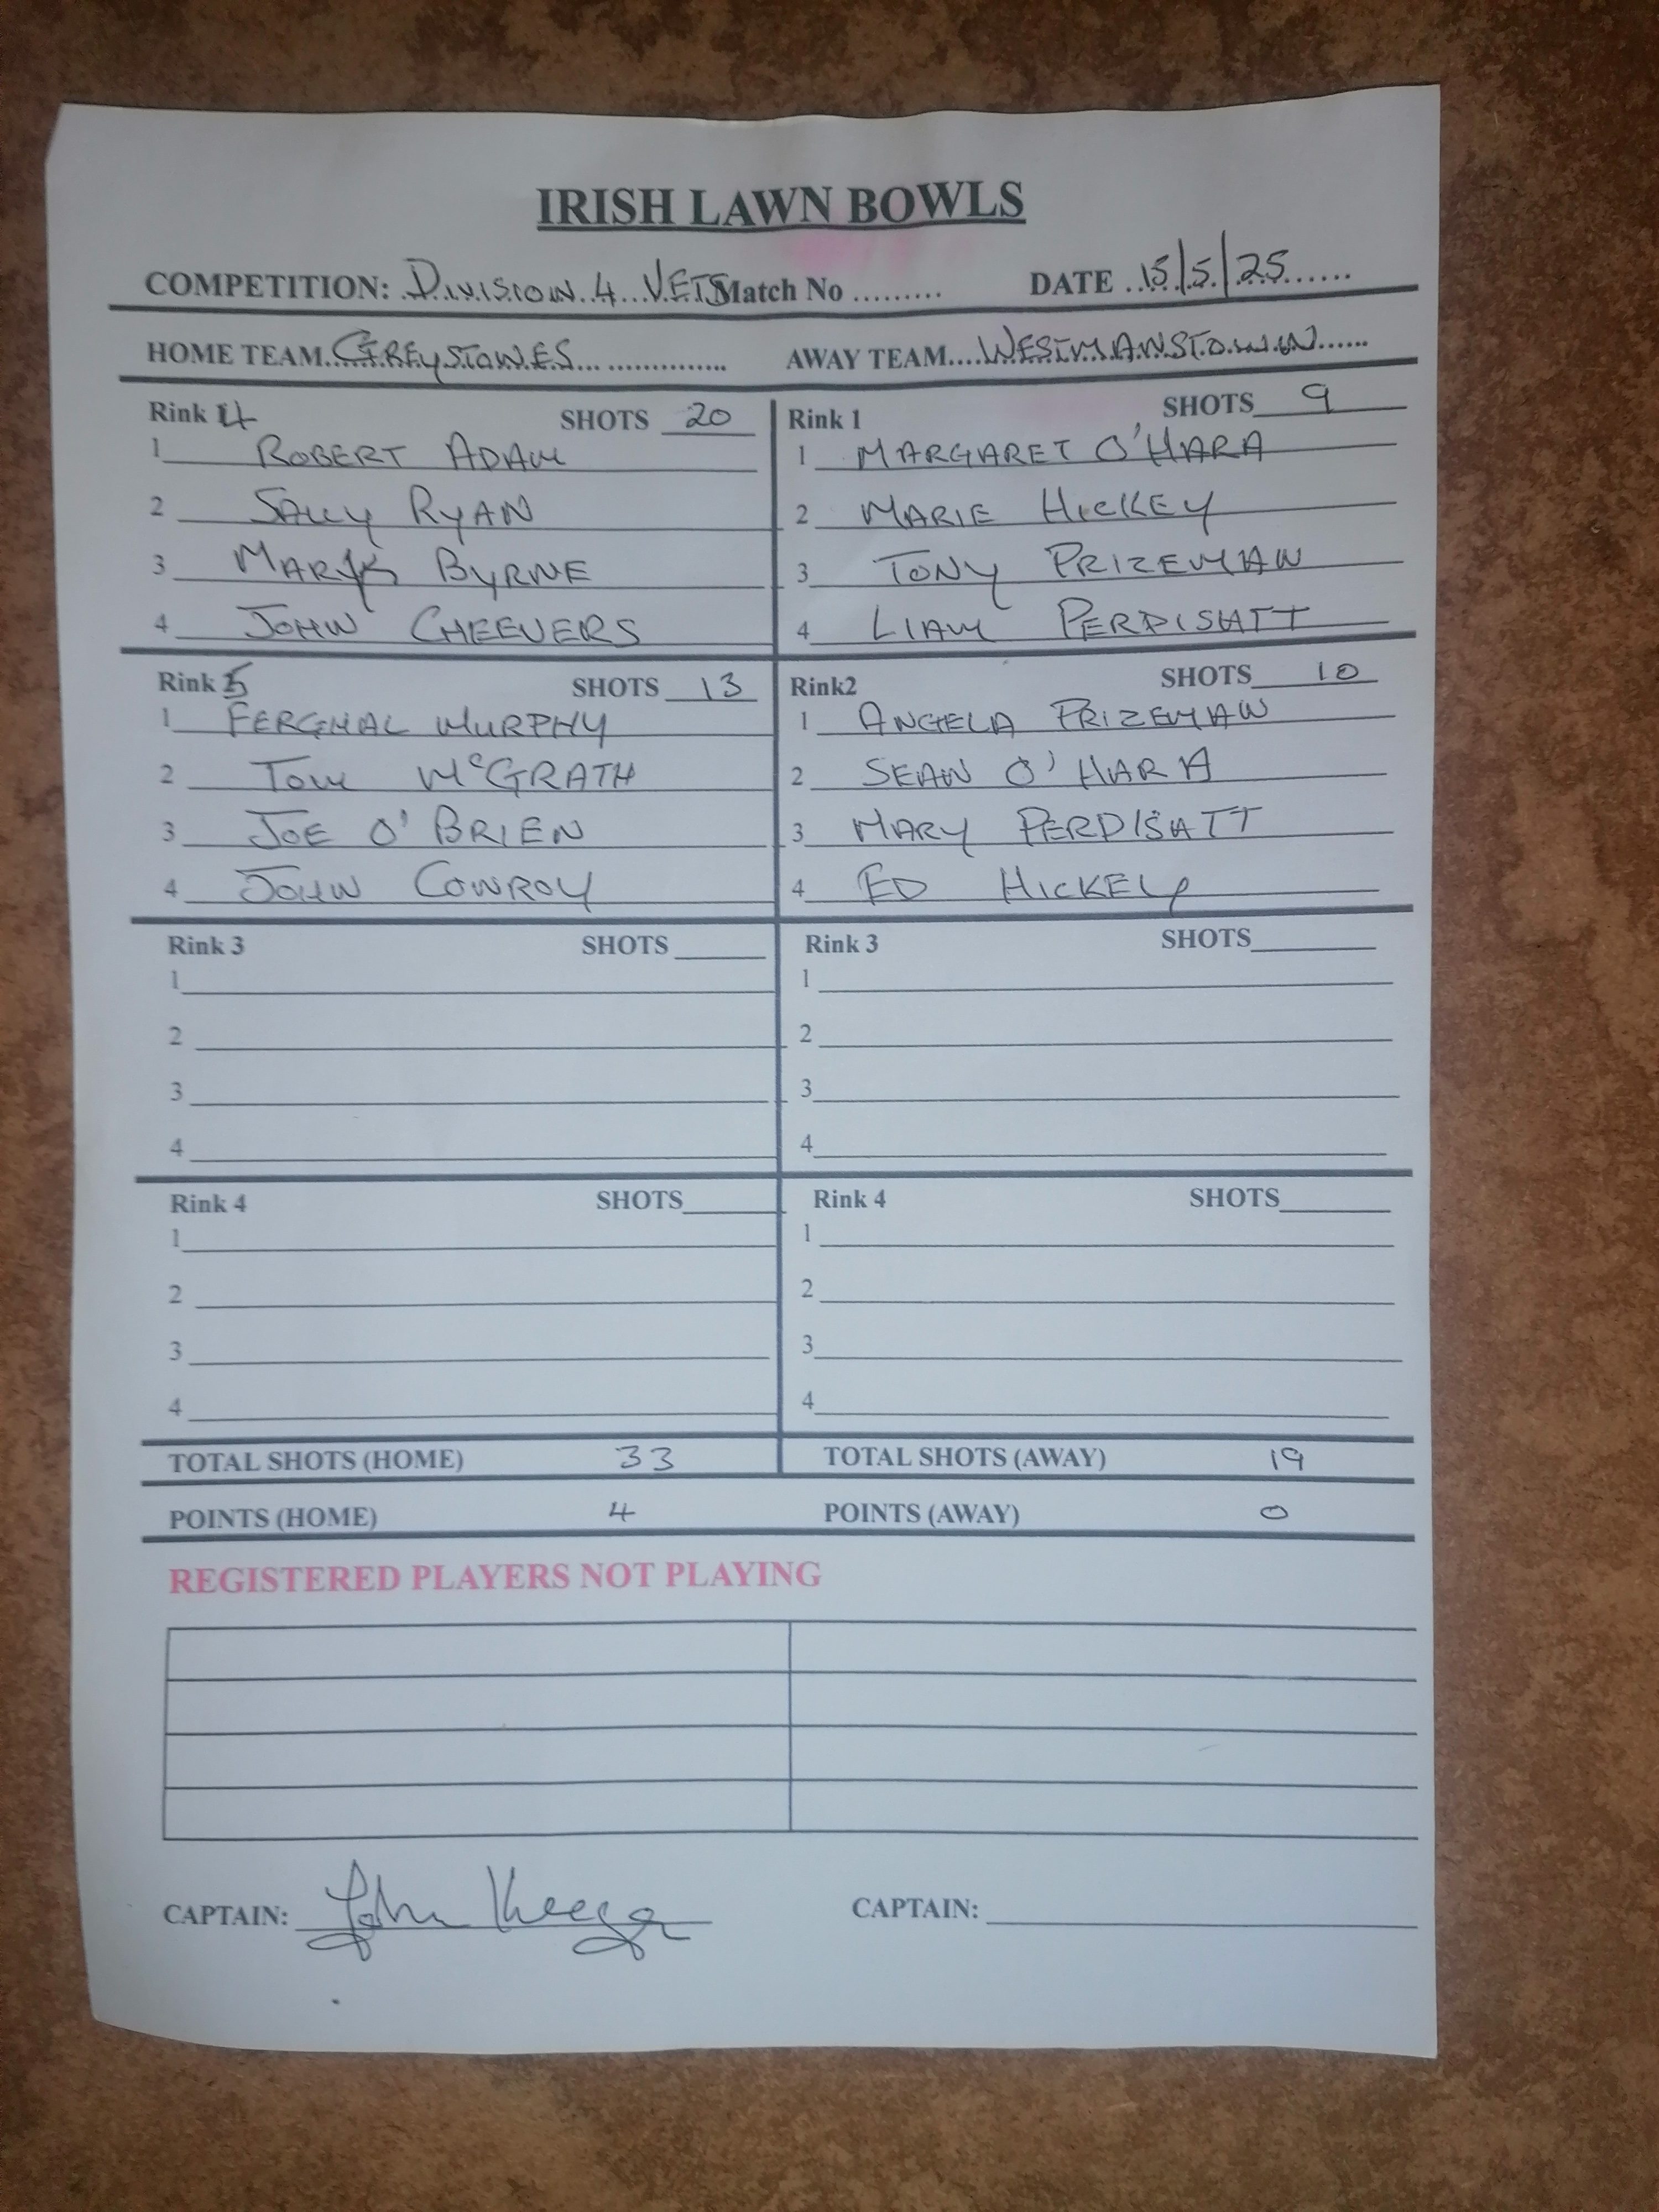 IRISH LAWN BOWLS
COMPETITION: DIVISION 4 VETS Match No ......... DATE 15/5/25
HOME TEAM GREYSTONES AWAY TEAM WESTMANSTOWN
Rink 4 SHOTS 20
1 ROBERT ADAM
2 SALLY RYAN
3 BYRNE
4 JOHN CHEEVERS
Rink 1 SHOTS 9
1 MARGARET O'HARA
2 MARIE HICKEY
3 TONY PRIZEMAN
4 LIAM PERDISATT
Rink 5 SHOTS 13
1 FERGHAL MURPHY
2 TOM McGRATH
3 JOE O'BRIEN
4 JOHN CONROY
Rink2 SHOTS 10
1 ANGELA PRIZEMAN
2 SEAN O'HARA
3 MARY PERDISATT
4 ED HICKEY
Rink 3 SHOTS
1
2
3
4
Rink 3 SHOTS
1
2
3
4
Rink 4 SHOTS
1
2
3
4
Rink 4 SHOTS
1
2
3
4
TOTAL SHOTS (HOME) 33 TOTAL SHOTS (AWAY) 19
POINTS (HOME) 4 POINTS (AWAY) 0
REGISTERED PLAYERS NOT PLAYING
CAPTAIN: John CAPTAIN: